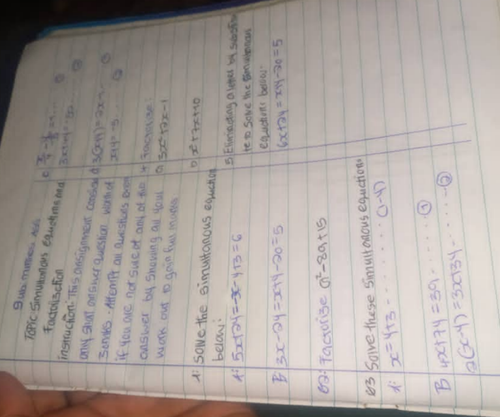 TOPIC: Simultanous equations and
Factorisction
instruction: This assignment consist
only shot answer question worth of
30 marks. Attempt all questions even
if you are not sure of any of the
answer by showing all your
work out to gain the marks
1. Solve the simultanous equation
below:
A. 5x+24=x-y+3=6
B. 3x-24-x+4-20=5
Q2. Factorize a²-8a+15
Q3 Solve these simultanous equation:
A. x=y+3.......(1-4)
B. 4x+y=39......(1)
2(x-y)=3x+34......(2)
3x+y=-50 (2)
d. 3(x+y)=2x+1.. (1)
x+y=-5.... (2)
4 Factorise:
a. 3x²+2x-1
b. x²+7x+10
5. Eliminating a letter by substitu
te to solve the simultanous
equations below:
6x+24=x+4-20=5